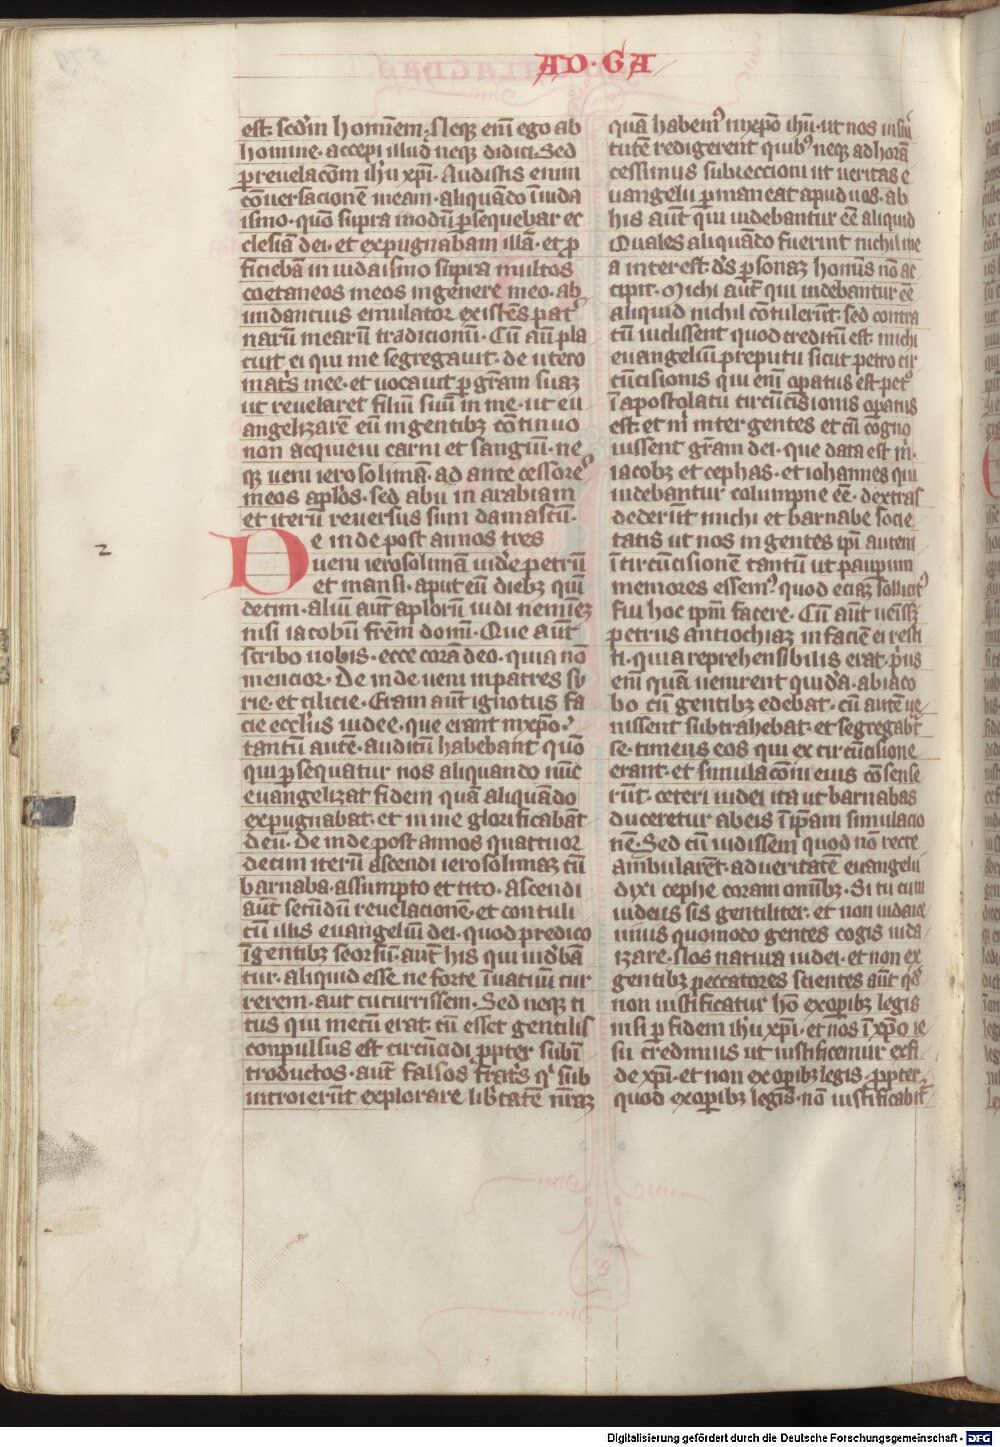 AD·GA
est. sed'in hominem. Neqꝫ eni̅ ego ab
homine. accepi illud neqꝫ didici. Sed
ꝑ reuelaco̅m ih'u xp̅i. Audistis enim
co̅uersacione̅ meam. aliqua̅do i̅ iuda
ismo. quo̅ supra modu̅ ꝑsequebar ec
clesia̅ dei. et expugnabam illa̅. et ꝓ
ficieba̅ in iudaismo supra multos
coetaneos meos in genere meo. ab
undancius emulator existe̅s pat'
naru̅ mearu̅ tradicionu̅. Cu̅ au̅t pla
cuit ei qui me segregauit. de utero
mat's mee. et uocauit ꝑ gr̅am suaꝫ
ut reuelaret filiu̅ suu̅ in me. ut eu
angelizare̅ eu̅ in gentibꝫ co̅tinuo
non acquieui carni et sangui̅. ne
qꝫ ueni ierosolima̅. ad ante cessore⁹
meos ap̅los. sed abii in arabiam
et iteru̅ reuersus sum damascu̅.
De inde post annos tres
ueni ierosolima̅ uid'e petru̅
et mansi. aput eu̅ diebꝫ qui̅
decim. aliu̅ au̅t ap̅loru̅ uidi nemi̅eꝫ
nisi iacobu̅ fr̅em domi̅. Que au̅t
scribo uobis. ecce cora̅ deo. quia no̅
mencior. De inde ueni in partes sy
rie. et cilicie. Eram au̅t ignotus fa
cie eccl'iis iudee. que erant in xp̅o.
tantu̅ aute̅. auditu̅ habebant quo̅
qui ꝑsequatur nos aliquando nu̅c
euangelizat fidem qua̅ aliqua̅do
expugnabat. et in me glorificaba̅t
deu̅. De inde post annos quattuor
decim iteru̅ ascendi ierosolimaꝫ cu̅
barnaba. assumpto et tito. Ascendi
au̅t secu̅du̅ reuelacione̅. et contuli
cu̅ illis euangeliu̅ dei. quod predico
i̅ gentibꝫ seorsu̅. au̅t his qui uid'ba̅
tur. aliquid esse ne forte i̅ uacuu̅ cur
rerem. aut cucurrissem. Sed neqꝫ ti
tus qui mecu̅ erat. cu̅ esset gentilis
conpulsus est circu̅cidi ꝓpter subi̅
troductos. au̅t falsos frat's q' sub
introieru̅t explorare lib'tate̅ nr̅aꝫ
qua̅ habem⁹ in xp̅o ih'u. ut nos in s'ui
tute̅ redigerent quibꝫ neqꝫ ad hora̅
cessimus subieccioni ut ueritas e
uangelii ꝑmaneat apud uos. ab
his au̅t qui uidebantur e̅e aliquid
Quales aliqua̅do fuerint nichil me
a interest. d's ꝑsonaꝫ homi̅s no̅ ac
cipit. Michi au̅t qui uidebantur e̅e
aliquid nichil co̅tuleru̅t. sed contra
cu̅ uidissent quod creditu̅ est michi
euangeliu̅ preputii sicut petro cir
cu̅cisionis qui eni̅ opatus est pet⁹
i̅ apostolatu circu̅cisionis opatus
est. et m' inter gentes et cu̅ cogno
uissent gr̅am dei. que data est m'.
iacobꝫ et cephas. et iohannes qui
uidebantur columpne e̅e. dextras
dederu̅t michi et barnabe socie
tatis ut nos in gentes ip̅i autem
i̅ circu̅cisione̅ tantu̅ ut pauꝑum
memores essem⁹. quod eciaꝫ sollicit⁹
fui hoc ip̅m facere. Cu̅ au̅t ueni̅sꝫ
petrus antiochiaꝫ in facie̅ ei resti
ti. quia reprehensibilis erat. p'us
eni̅ qua̅ uenirent quida̅. ab iaco
bo cu̅ gentibꝫ edebat. cu̅ aute̅ ue
nissent subtrahebat. et segregab̅t
se. timens eos qui ex circu̅cisione
erant. et simulacioni eius co̅sense
ru̅t. ceteri iudei ita ut barnabas
duceretur ab eis i̅ ip̅am simulacio
ne̅. Sed cu̅ uidissem quod no̅ recte
ambulare̅t. ad ueritate̅ euangelii
dixi cephe coram omi̅bꝫ. Si tu cum
iudeus sis gentiliter. et non iudaice
uiuis quomodo gentes cogis iuda
izare. Nos natura iudei. et non ex
gentibꝫ peccatores scientes au̅t qd'
non iustificatur ho̅ ex opibꝫ legis
nisi ꝑ fidem ih'u xp̅i. et nos i̅ xp̅o ie
su credimus ut iustificemur ex fi
de xp̅i. et non ex opibꝫ legis. ꝓpter
quod ex opibꝫ legis. no̅ iustificabit'
2
Digitalisierung gefördert durch die Deutsche Forschungsgemeinschaft - DFG